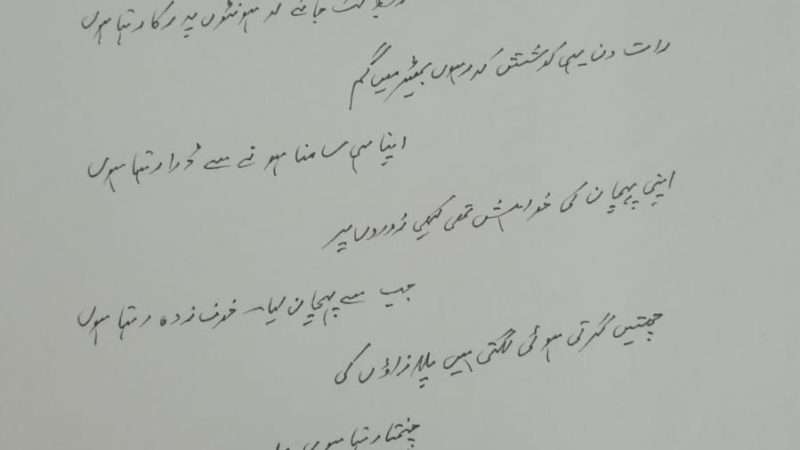 جانے کہ ہونٹوں پہ رکا رہتا ہوں
رات دن یہی کوشش کہ رہوں بھیڑ میں گم
اپنا ہی سامنا ہونے سے ڈرا رہتا ہوں
اپنی پہچان کی خواہش تھی کبھی زوروں پر
جب سے پہچان لیا، خوف زدہ رہتا ہوں
چھتیں گرتی ہوئی لگتی ہیں پلازاؤں کی
رہتا ہوں